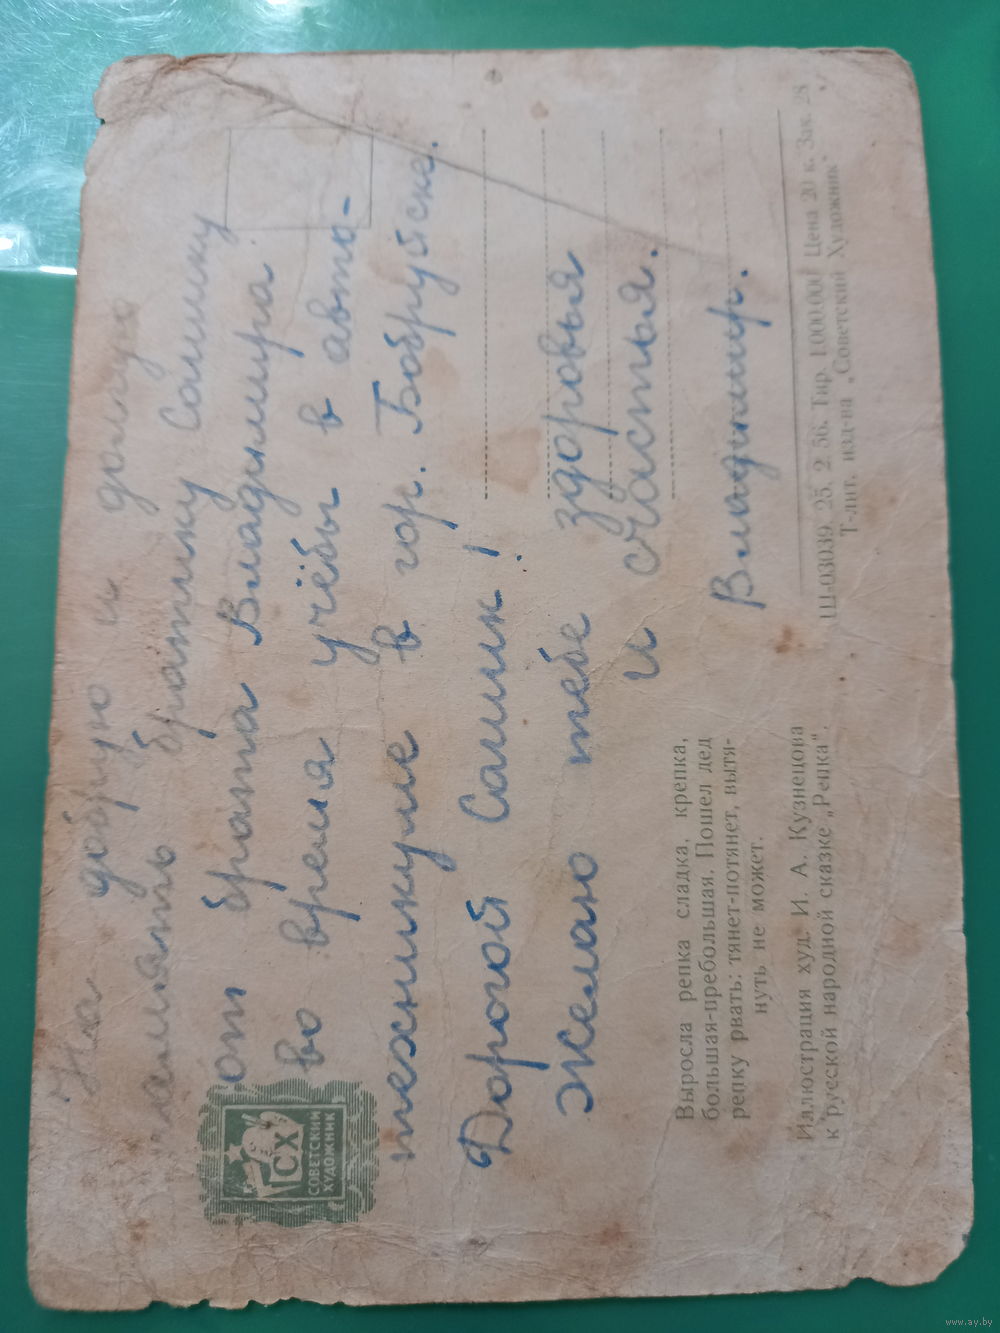 На добрую и долгую
память братику Солику
от брата Владимира
во время учёбы в авто-
техникуме в гор. Бобруйске.
Дорогой Солик!
Желаю тебе здоровья
и счастья.
Владимир.
СХ
СОВЕТСКИЙ
ХУДОЖНИК
Выросла репка сладка, крепка,
большая-пребольшая. Пошел дед
репку рвать: тянет-потянет, вытя-
нуть не может.
Иллюстрация худ. И. А. Кузнецова
к русской народной сказке „Репка“.
Ш-03039 25. 2. 56. Тир. 1000.000 Цена 20 к. Зак. 28
Т-лит. изд-ва „Советский Художник“
www.ay.by